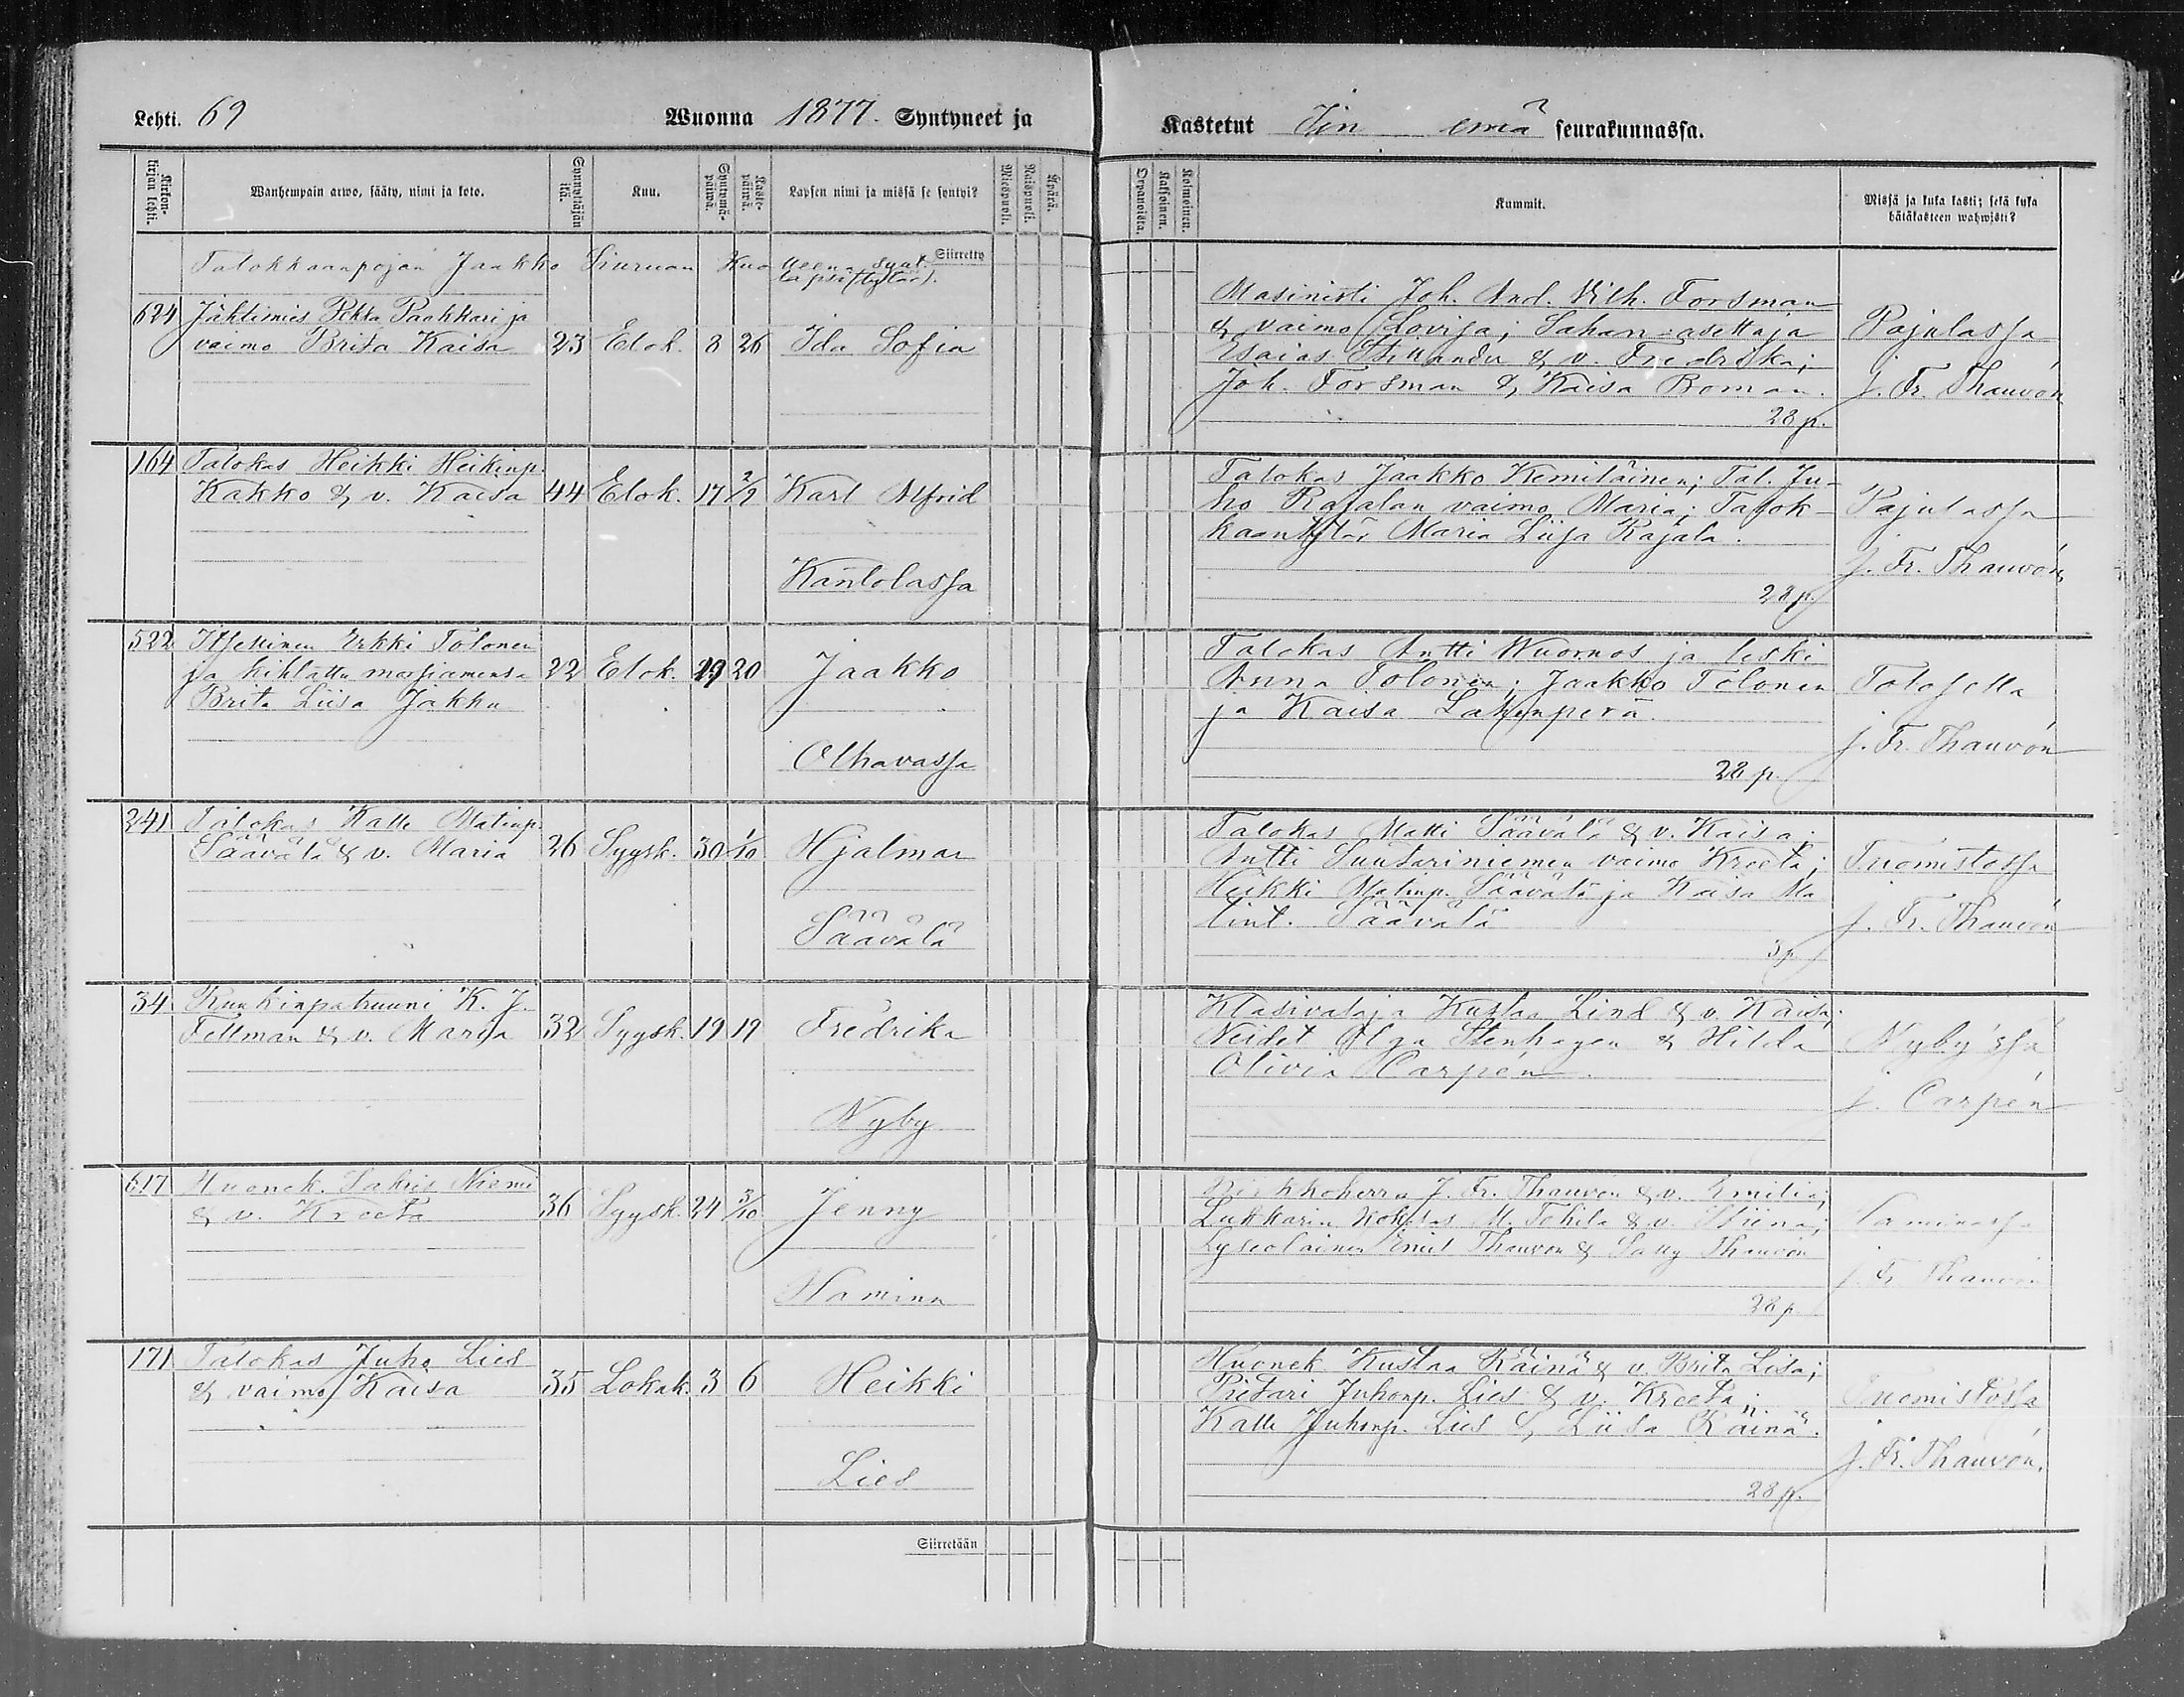 Lehti. 69
Wuonna 1877. Syntyneet ja
Kirkonkirjan lehti.
Wanhempain arwo, sääty, nimi ja koto.
Synnyttäjän ikä.
Kuu.
Syntymäpäiwä.
Kastepäiwä.
Lapsen nimi ja missä se syntyi?
Miespuoli.
Naispuoli.
Äpärä.
Siirretty
Talokkaanpojan Jaakko Siuruan Kuolleena synt.
lapsi (tytär).
624 Jahtimies Pekka Paakkari ja
vaimo Brita Kaisa 23 Elok. 8 26 Ida Sofia
164 Talokas Heikki Heikinp.
Kakko & v. Kaisa 44 Elok. 17 2/9 Karl Alfrid
Kantolassa
522 Itsellinen Erkki Tolonen
ja kihlattu morsiamensa 22 Elok. 19 20 Jaakko
Brita Liisa Jakku
Olhavassa
241 Talokas Kalle Matinp.
Säävälä & v. Maria 26 Syysk. 30 1/10 Hjalmar
Säävälä
34 Ruukinpatruuni K. J.
Fellman & v. Maria 32 Syysk. 19 19 Fredrika
Nyby
617 Huonek. Sakris Niemi
& v. Kreeta 36 Syysk. 24 3/10 Jenny
Hamina
171 Talokas Juho Lies
& vaimo Kaisa 35 Lokak. 3 6 Heikki
Lies
Siirretään
Kastetut Iin emä seurakunnassa.
Orpanoista.
Kaksoinen.
Kolmoinen.
Kummit.
Missä ja kuka kasti; sekä kuka
hätäkasteen wahwisti?
Masinisti Joh. And. Vilh. Forsman
& vaimo Lovisa; Sahan asettaja
Esaias & v. Fredrika;
Joh. Forsman & Kaisa Boman.
28 p.
Pajulassa
J. Fr. Thauvón
Talokas Jaakko Kemiläinen; Tal. Ju-
ho Rajalan vaimo Maria; Talok-
kaantytär Maria Liisa Rajala.
28 p.
Pajulassa
J. Fr. Thauvón
Talokas Antti Wuornos ja leski
Anna Tolonen; Jaakko Tolonen
ja Kaisa Lahenperä.
28 p.
J. Fr. Thauvón
Talokas Matti Säävälä & v. Kaisa;
Antti Suutariniemen vaimo Kreeta;
Heikki Matinp. Säävälä ja Kaisa Ma
tint. Säävälä
3 p.
Tuomistossa
J. Fr. Thauvón
Klasivalaja Kustaa Lind & v. Kaisa;
Neidet Olga Stenhagen & Hilda
Olivia Carpén.
Nyby'ssä
J. Carpén
Kirkkoherra J. Fr. Thauvón & v. Emilia;
Lukkarin M. Tohila & v. Stiina;
Lyseolainen Emil Thauvón & Sally Thauvón
28 p.
Haminassa
J. Fr. Thauvón
Huonek. Kustaa Räinä & v. Brita Liisa;
Pietari Juhonp. Lies & v. Kreeta;
Kalle Juhonp. Lies & Liisa Räinä.
28 p.
Tuomistossa
J. Fr. Thauvón.